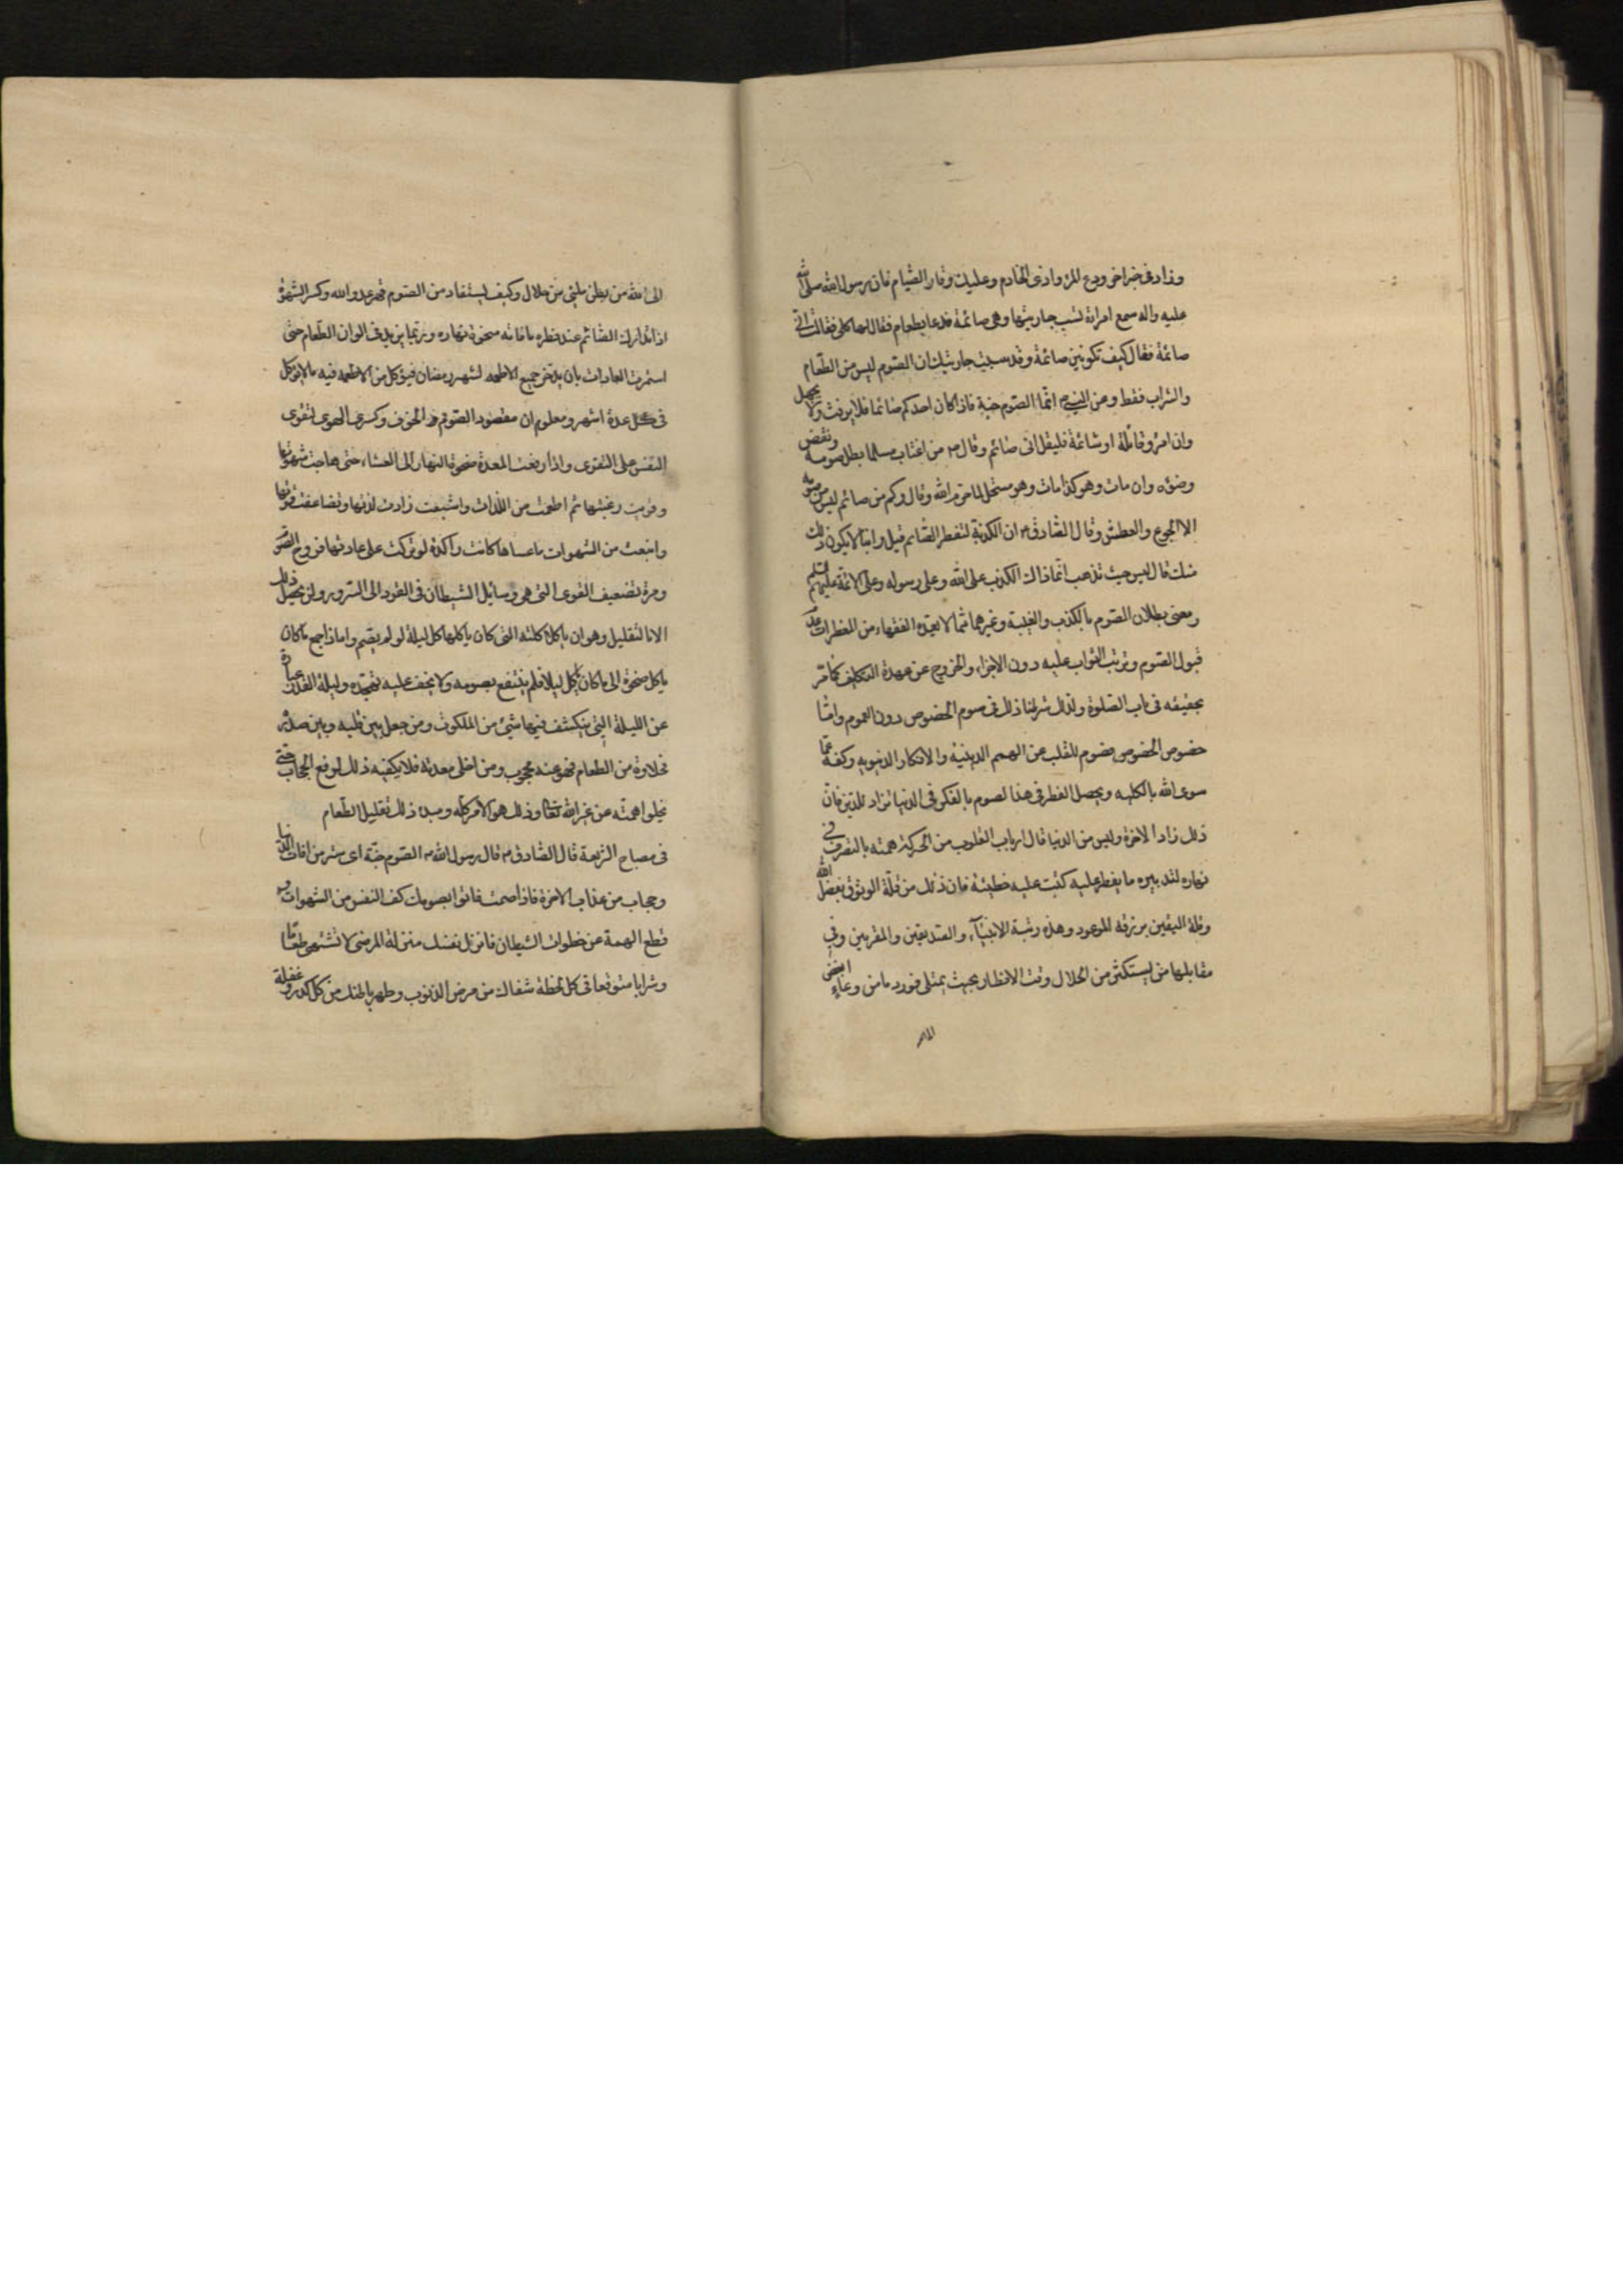 وزاد في خبر اخر ودع المراء واذى الخادم وعليك وقار الصّيام فان رسول الله صلى الله
عليه واله سمع امراة تسب جاريتها وهي صائمة فدعا بطعام فقال لها كلي فقالت اني
صائمة فقال كيف تكونين صائمة وقد سببت جاريتك ان الصّوم ليس من الطّعام
والشراب فقط وعن النبي انّما الصّوم جنة فاذا كان احدكم صائما فلا يرفث ولا يجهل
وان امرؤ قاتله او شاتمه فليقل اني صائم وقال من اغتاب مسلما بطل صومه ونقض
وضوءه وان مات وهو كذا مات وهو مستحل لما حرم الله وقال وكم من صائم ليس من صومه
الا الجوع والعطش وقال الصّادق ان الكذبة لتفطر الصّائم قيل واينا لا يكون ذلك
منه قال ليس حيث تذهب انّما ذاك الكذب على الله وعلى رسوله وعلى الائمة عليهم السلم
ومعنى بطلان الصّوم بالكذب والغيبة وغيرهما ممّا لا يعده الفقهاء من المفطرات عدم
قبول الصّوم وترتب الثواب عليه دون الاجزاء والخروج عن عهدة التكليف كما مرّ
تحقيقه في باب الصّلوة ولذلك شرطنا ذلك في صوم الخصوص دون العموم وامّا
خصوص الخصوص فصوم للقلب عن الهمم الدنية والافكار الدنيوية وكفه عمّا
سوى الله بالكلية ويحصل الفطر في هذا الصوم بالفكر في الدنيا تراد للدّين فان
ذلك زاد الاخرة وليس من الدنيا قال ارباب القلوب من تحركت همته بالتصرف في
نهاره لتدبيره ما يفطر عليه كتبت عليه خطيئة فان ذلك من قلّة الوثوق بفضل الله
وقلة اليقين برزقه الموعود وهذه رتبة الانبيآء والصّديقين والمقربين وفي
مقابلها من يستكثر من الحلال وقت الافطار بحيث يمتلي فورد ما من وعاءٍ ابغض
الى الله من بطن ملئ من حلال وكيف يستفاد من الصّوم قهر عدو الله وكسر الشهوة
اذا تدارك الصّائم عند فطره ما فاته ضحوة نهاره وربّما يزيد في الوان الطّعام حتّى
استمرت العادات بان يدّخر جميع الاطعمه لشهر رمضان فيؤكل من الاطعمه فيه ما لا يؤكل
في كل عدة اشهر ومعلوم ان مقصود الصّوم الخوف وكسر الهوى لتقوى
النّفس على التقوى واذا رفعت المعدة ضحوة النهار الى العشاء حتى هاجت شهوتها
وقويت رغبتها ثم اطعمت من اللذات واشبعت زادت لذتها وتضاعفت قوتها
وانبعث من الشهوات ما عساها كانت راكدة لو تركت على عادتها فروح الصّوم
وسره تضعيف القوى التي هي وسائل الشيطان في القود الى الشرور ولن يحصل ذلك
الا بالتقليل وهو ان ياكل اكلته التي كان ياكلها كل ليلة لو لم يصم واما اذا جمع ما كان
ياكل ضحوة الى ما كان ياكل ليلا فلم ينتفع بصومه ولا يخف عليه تهجّده وليلة القدر عبارة
عن الليلة التي ينكشف فيها شيئ من الملكوت ومن جعل بين قلبه وبين صدره
مخلاة من الطعام فهو عنه محجوب ومن اخلى معدته فلا يكفيه ذلك لرفع الحجاب حتى
يخلوا همته عن غير الله تعا وذلك هو الامر كلّه ومبدء ذلك تقليل الطّعام
في مصباح الشريعة قال الصّادق قال رسول الله الصّوم جنّة اى ستر من افات الدّنيا
وحجاب من عذاب الاخرة فاذا صمت فانو بصومك كف النفس من الشهوات و
قطع الهمة عن خطوات الشيطان فانزل نفسك منزلة المرضى لا تشتهى طعاما
وشرابا متوقعا في كل لحظة شفاك من مرض الذنوب وطهر باطنك من كل كدر وغفلة